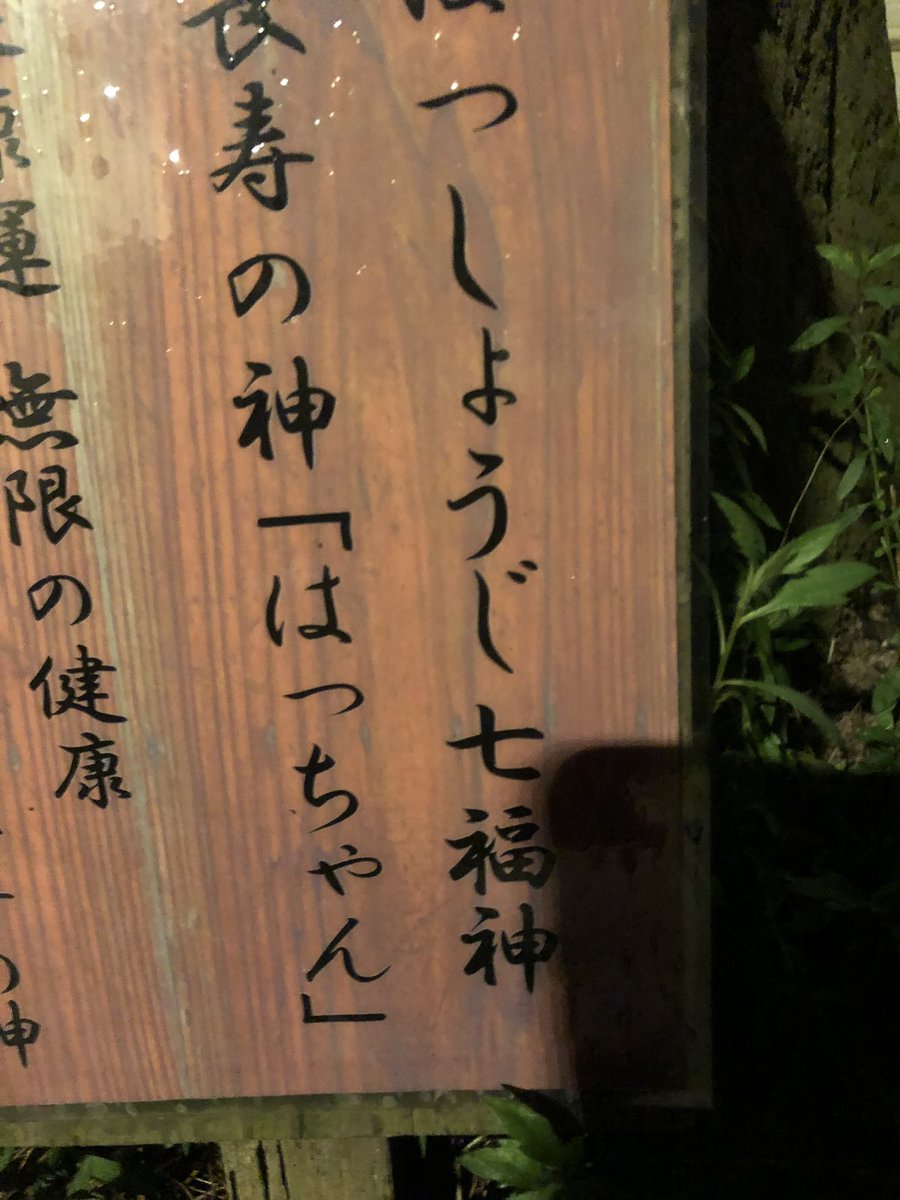 っしょうじ七福神
長寿の神「はっちゃん」
運 無限の健康
の神